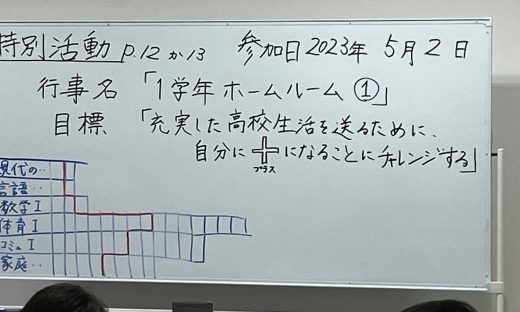 特別活動 P.12か13 参加日2023年 5月2日
行事名「1学年ホームルーム①」
目標「充実した高校生活を送るために、
自分に＋になることにチャレンジする」
プラス
現代の‥
言語‥
数学Ⅰ
体育Ⅰ
コミュⅠ
家庭‥